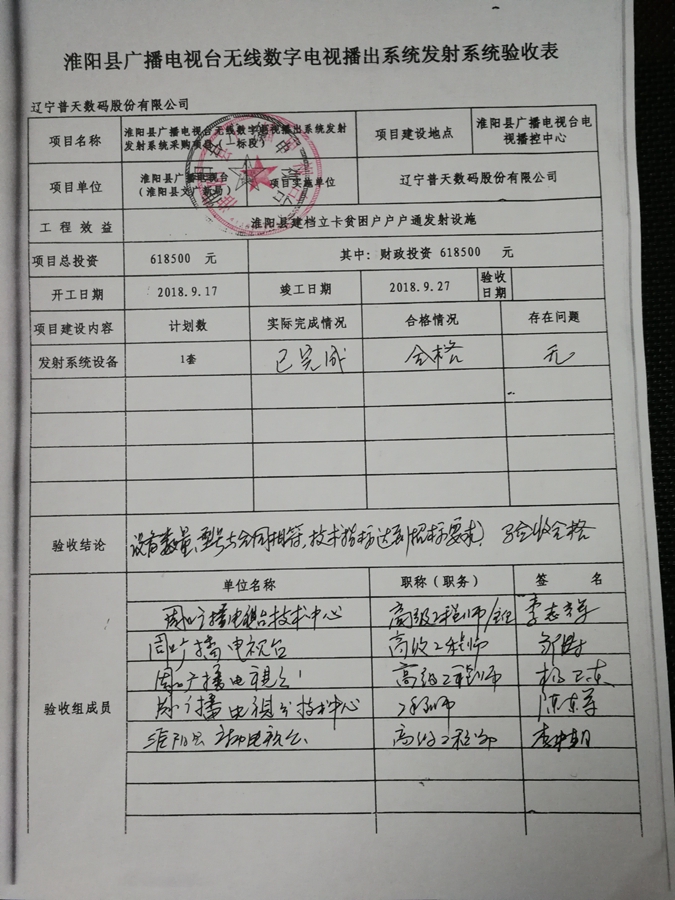 淮阳县广播电视台无线数字电视播出系统发射系统验收表
辽宁普天数码股份有限公司
项目名称 淮阳县广播电视台无线数字电视播出系统发射 项目建设地点 淮阳县广播电视台电
发射系统采购项目(一标段) 视播控中心
项目单位 淮阳县广播电视台 项目实施单位 辽宁普天数码股份有限公司
(淮阳县文广新局)
工程效益 淮阳县建档立卡贫困户户户通发射设施
项目总投资 618500 元 其中: 财政投资 618500 元
开工日期 2018.9.17 竣工日期 2018.9.27 验收
日期
项目建设内容 计划数 实际完成情况 合格情况 存在问题
发射系统设备 1套 已完成 合格 无
验收结论 设备数量、型号与合同相符,技术指标达到招标要求,验收合格
单位名称 职称(职务) 签 名
周口广播电视台技术中心 高级工程师/主任
周口广播电视台 高级工程师
周口广播电视台 高级工程师
验收组成员 周口广播电视台技术中心 工程师 陈东军
淮阳县广播电视台 高级工程师